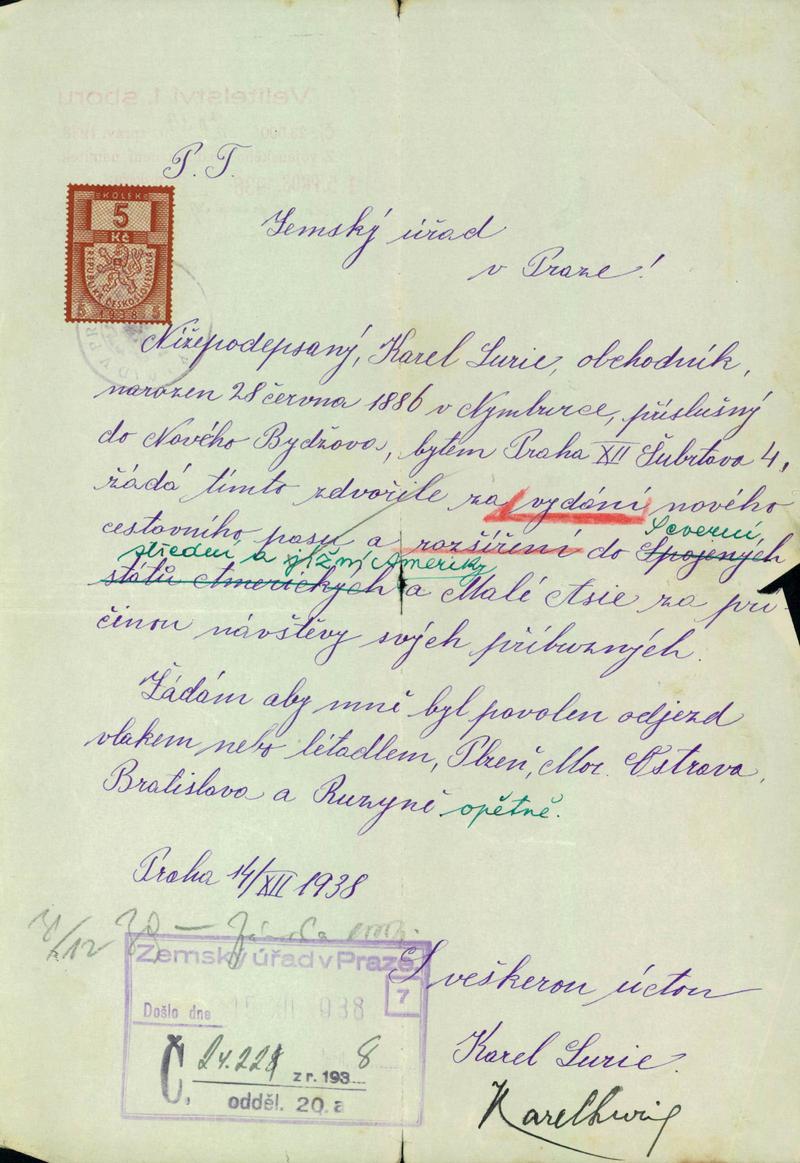 Velitelství I. sboru
P. T.
KOLEK
5
Kč
REPUBLIKA ČESKOSLOVENSKÁ
5 1938 5
Zemský úřad
v Praze!
Nížepodepsaný, Karel Lurie, obchodník,
narozen 28 června 1886 v Nymburce, příslušný
do Nového Bydžova, bytem Praha XII Šubrtova 4,
žádá tímto zdvořile za vydání nového
Severní
cestovního pasu a rozšíření do Spojených
střední a jižní Ameriky
států Amerických a Malé Asie za pří-
činou návštěvy svých příbuzných.
Žádám aby mně byl povolen odjezd
vlakem nebo létadlem, Plzeň, Mor. Ostrava,
Bratislava a Ruzyně opětně.
Praha 14/XII 1938
Zemský úřad v Praze
7
Došlo dne 15 XII 1938
Č. 24.228 z r. 1938
odděl. 20.a
S veškerou úctou
Karel Lurie.
Karel Lurie